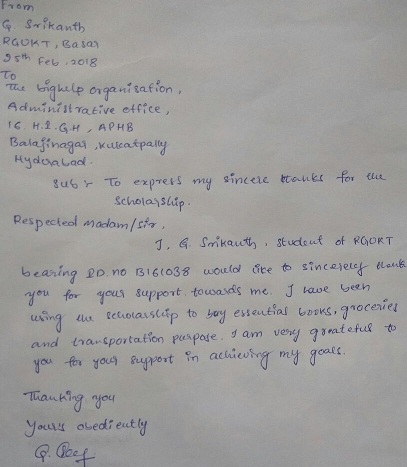 From
G. Srikanth
RGUKT, Basar
25th Feb, 2018
To
The bighelp organisation,
Administrative office,
16. H.I.G.H, APHB
Balajinagar, kukatpally
Hyderabad.
Sub :- To express my sincere thanks for the
Scholarship.
Respected madam/sir,
I, G. Srikanth, student of RGUKT
bearing ID.no B161038 would like to sincerely thank
you for your support towards me. I have been
using the scholarship to buy essential books, groceries
and transportation purpose. I am very greateful to
you for your support in achieving my goals.
Thanking you
Yours obediently
G.